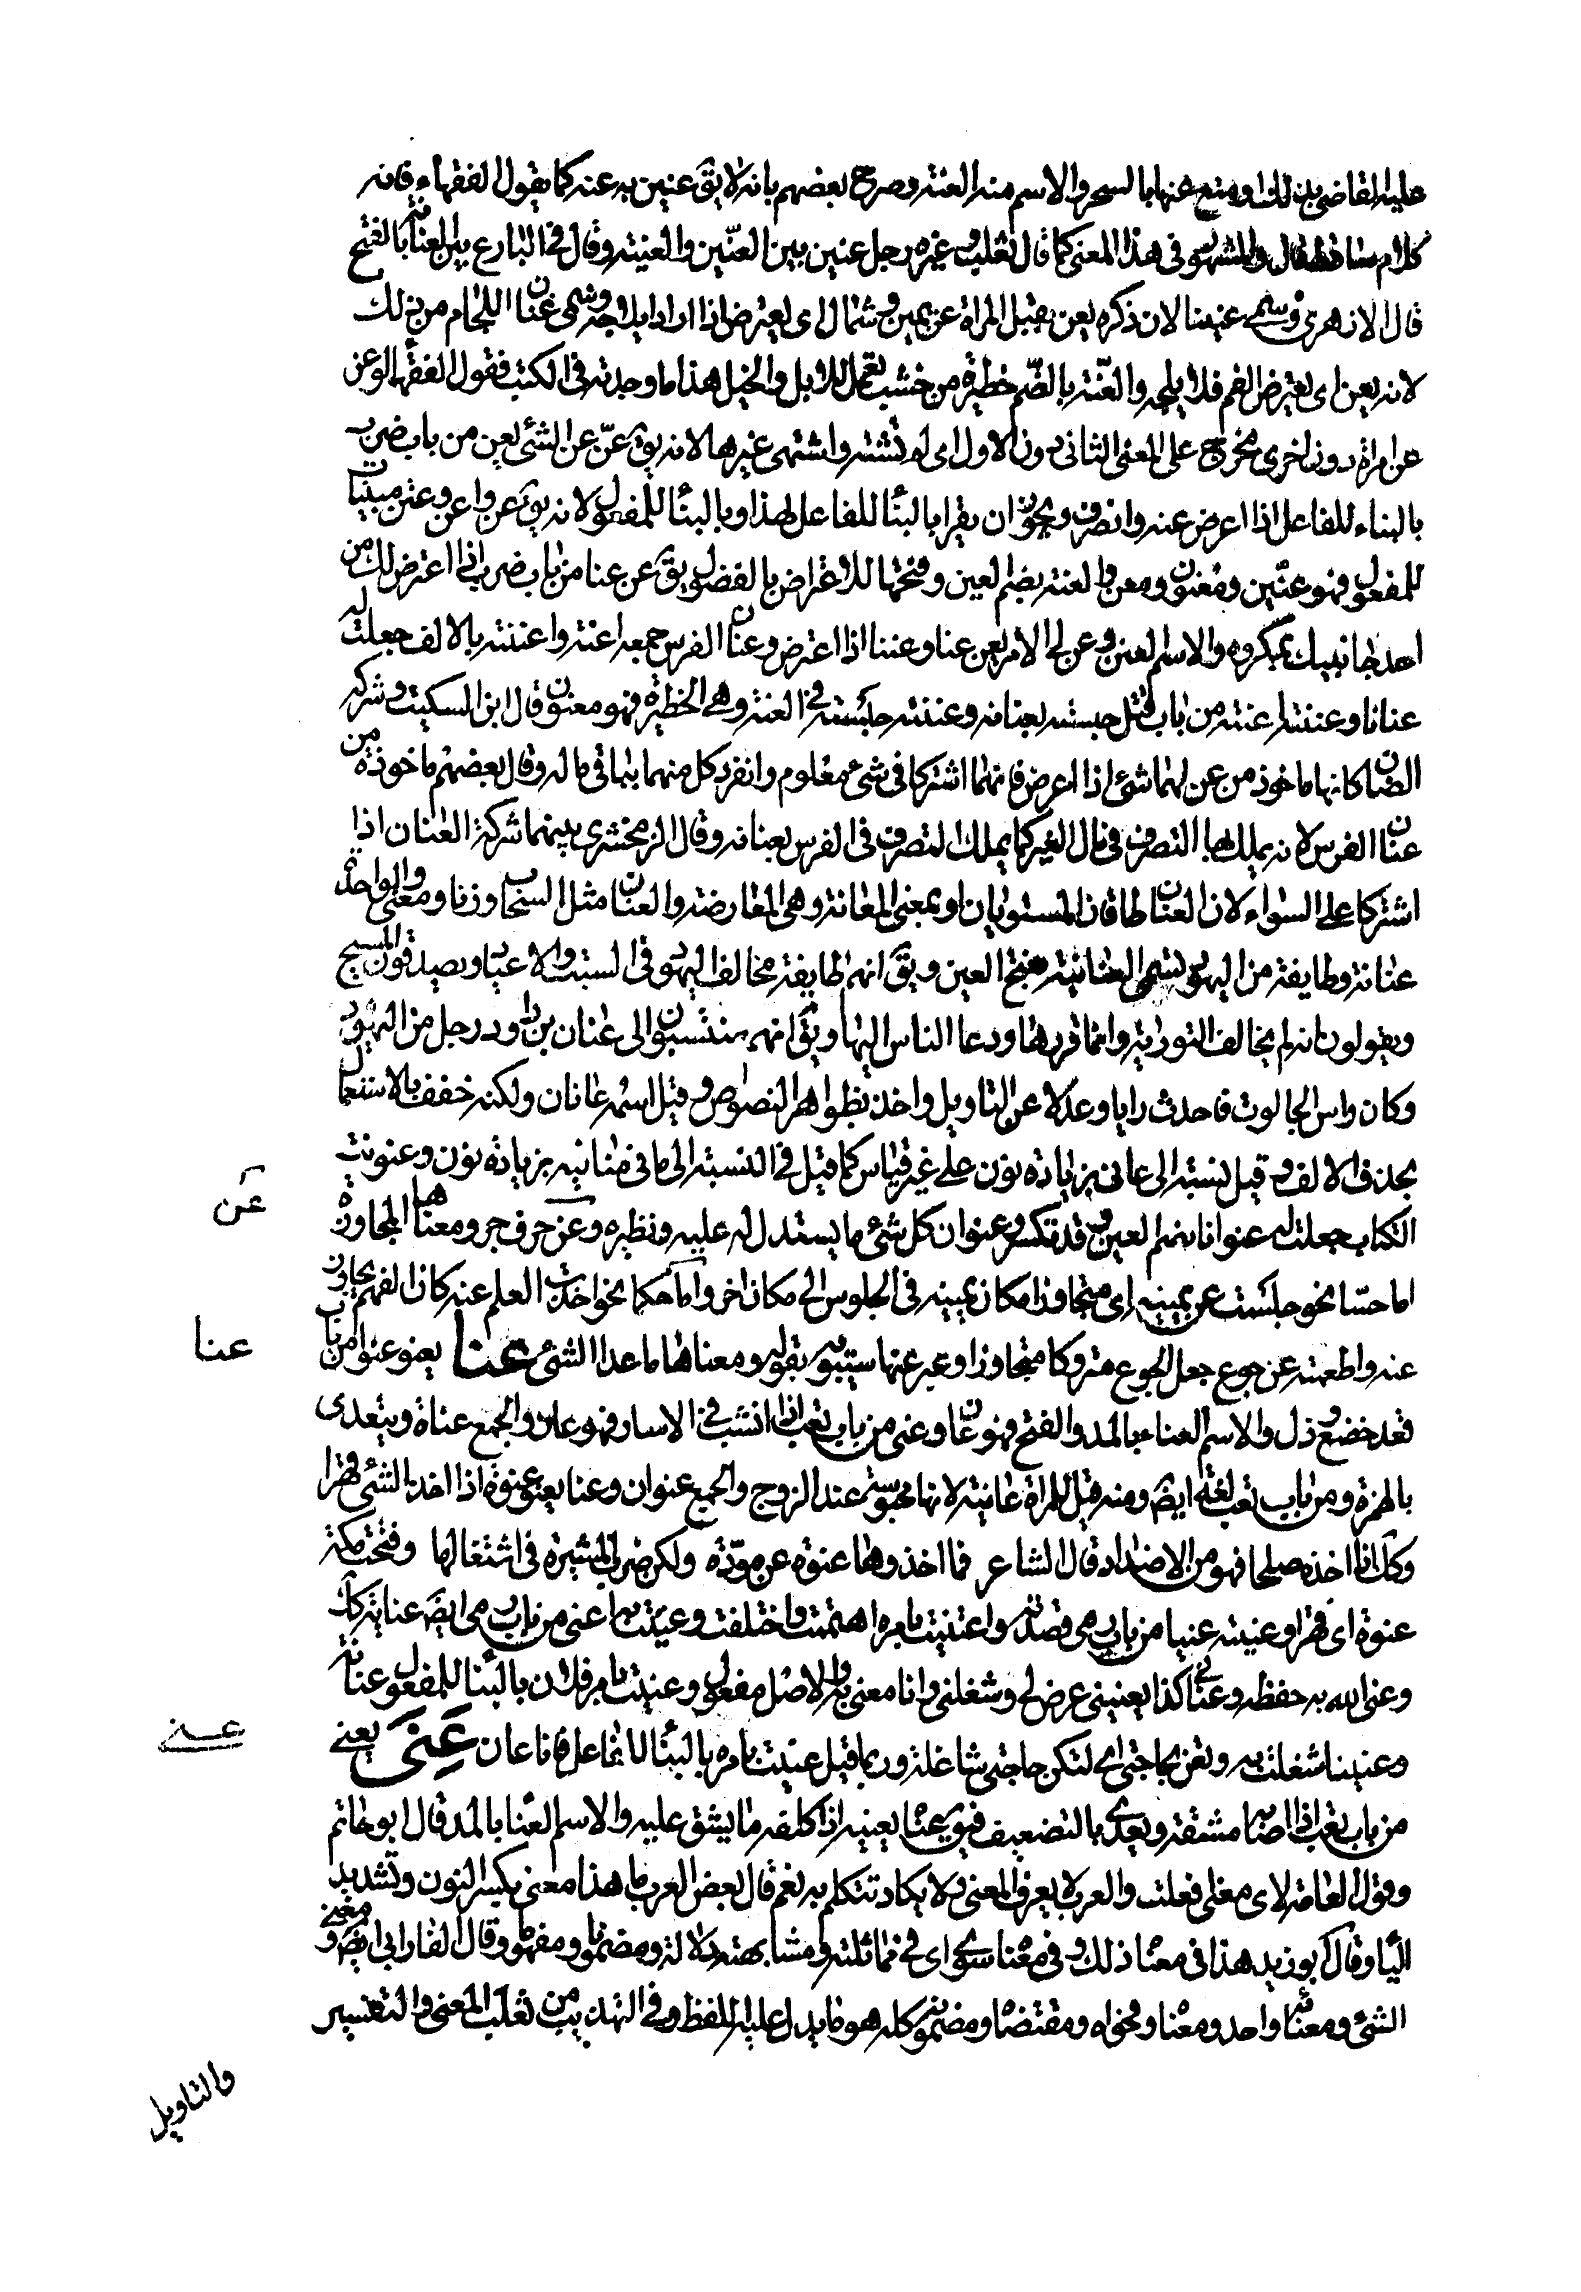 عليه القاضى بذلك او منع عنها بالسحر والاسم منه العنة وصرح بعضهم بانه لا يق عنين به عنة كما يقول الفقهاء فانه
كلام ساقط قال والمشهور فى هذا المعنى كما قال ثعلب وغيره رجل عنين بين العنّين والعنينة وقال فى البارع بين العنانة بالفتح
قال الازهرى وسمى عنينا لان ذكره يعن بقبل المراة عن يمين وشمال اى يعترض اذا اراد ايلاجه وسمى عنان اللجام من ذلك
لانه يعن اى يعترض الفم فلا يلجه والعنّة بالضّم حظيرة من خشب تعمل للابل والخيل هذا ما وجدته فى الكتب فقول الفقهاء لو عن
عن امراة دون اخرى مخرج على المعنى الثانى دون الاول اى لم تشته واشتهى غيرها لانه يق عنّ عن الشئ يعن من باب ضرب
بالبناء للفاعل اذا اعرض عنه وانصرف ويجوز ان يقرا بالبنا للفاعل لهذا وبالبنا للمفعول لانه يق عن واعن وعنن مبنيات
للمفعول فهو عنّين ومعنون ومعن والعنة بضم العين وفتحها للاعتراض بالفضول يق عن عنا من باب ضرب اذا اعترض لك من
احد جانبيك بمكروه والاسم العنن وعن لى الامر يعن عنا وعننا اذا اعترض وعنان الفرس جمعه اعنة واعننته بالالف جعلت له
عنانا وعننته اعنه من باب قتل حبسته بعنانه وعننته حبسته فى العنة وهى الحظيرة فهو معنون قال ابن السكيت وشركة
العنان كانها ماخوذ من عن لهما شئ اذا اعرض فانهما اشتركا فى شئ معلوم وانفرد كل منهما بباقى ماله وقال بعضهم ماخوذة من
عنان الفرس لانه يملك بها التصرف فى مال الغير كما يملك التصرف فى الفرس بعنانه وقال الزمخشرى بينهما شركة العنان اذا
اشتركا على السواء لان العنان طاقان المستويان او بمعنى المعانة وهى المعارضة والعنان مثل السحاب وزنا ومعنى والواحدة
عنانة وطايفة من اليهود تسمى العنانية بفتح العين ويق انهم طايفة مخالف اليهود فى السبت والاعياد ويصدقون المسيح
ويقولون انه لم يخالف التورية وانما قررها ودعا الناس اليها ويق انهم منتسبون الى عنان بن داود رجل من اليهود
وكان راس الجالوت فاحدث رايا وعدلا عن التاويل واخذ بظواهر النصوص وقيل اسمه عانان ولكنه خفف بالاستعمال
بحذف الالف وقيل نسبة الى عانى بزيادة نون على غير قياس كما قيل فى النسبة الى مانى منانية بزيادة نون وعنونت
الكتاب جعلت له عنوانا بضم العين وقد تكسر وعنوان كل شئ ما يستدل له عليه ونظيره وعن حرف جر ومعناها المجاوزة
اما حسّا نحو جلست عن يمينه اى متجاوزا مكان يمينه فى الجلوس الى مكان اخر واما حكما نحو اخذت العلم عنه كان الفهم تجاوز
عنه واطعمته عن جوع جعل الجوع متروكا متجاوزا وعبر عنها سيبويه بقوله ومعناها ما عدا الشئ عنا يعنو عنوا من باب
قعد خضع وذل والاسم العناء بالمد والفتح فهو عان وعنى من باب تعب اذا نشب فى الاسار فهو عان والجمع عناة ويتعدى
بالهمزة ومن باب تعب لغة ايض ومنه قيل للمراة عانية لانها محبوسة عند الزوج والجمع عنوان وعنا يعنو عنوة اذا اخذ الشئ قهرا
وكك اذا اخذه صلحا فهو من الاضداد قال الشاعر فما اخذوها عنوة عن مودّة ولكن ضرب المشيرة فى اشتغالها وفتحت مكة
عنوة اى قهرا وعنيته عنيا من باب رمى قصدته واعتنيت بامره اهتممت واختلفت وعنيت به اعنى من باب رمى ايض عناية كك
وعنى الله به حفظه وعنانى كذا يعنينى عرض لى وشغلنى وانا معنى به والاصل مفعول وعنيت بامر فلان بالبنا للمفعول عناية
وعنينا شغلت به ولتعن بحاجتى اى لتكن حاجتى شاغلة وربما قيل عنيت بامره بالبنا للفاعل فانا عان عَنِىَ يعنى
من باب تعب اذا اصابه مشقة ويعدى بالتضعيف فيق عنّاه يعنيه اذا كلفه ما يشق عليه والاسم العنا بالمد قال ابو حاتم
وقول العامة لاى معنى فعلت والعرب لا يعرف المعنى ولا يكاد تتكلم به نعم قال بعض العرب ما هذا معنى بكسر النون وتشديد
اليا وقال ابو زيد هذا فى معناه ذلك وفى معناه سواء اى فى مماثلته ومشابهته دلالة ومضمونا ومفهوما وقال الفارابى ايض ومعنى
الشئ ومعناته واحد ومعناه وفحواه ومقتضاه ومضمونه كله هو ما يدل عليه اللفظ وفى التهذيب من ثعلب المعنى والتفسير
والتاويل
عن
عنا
عنى